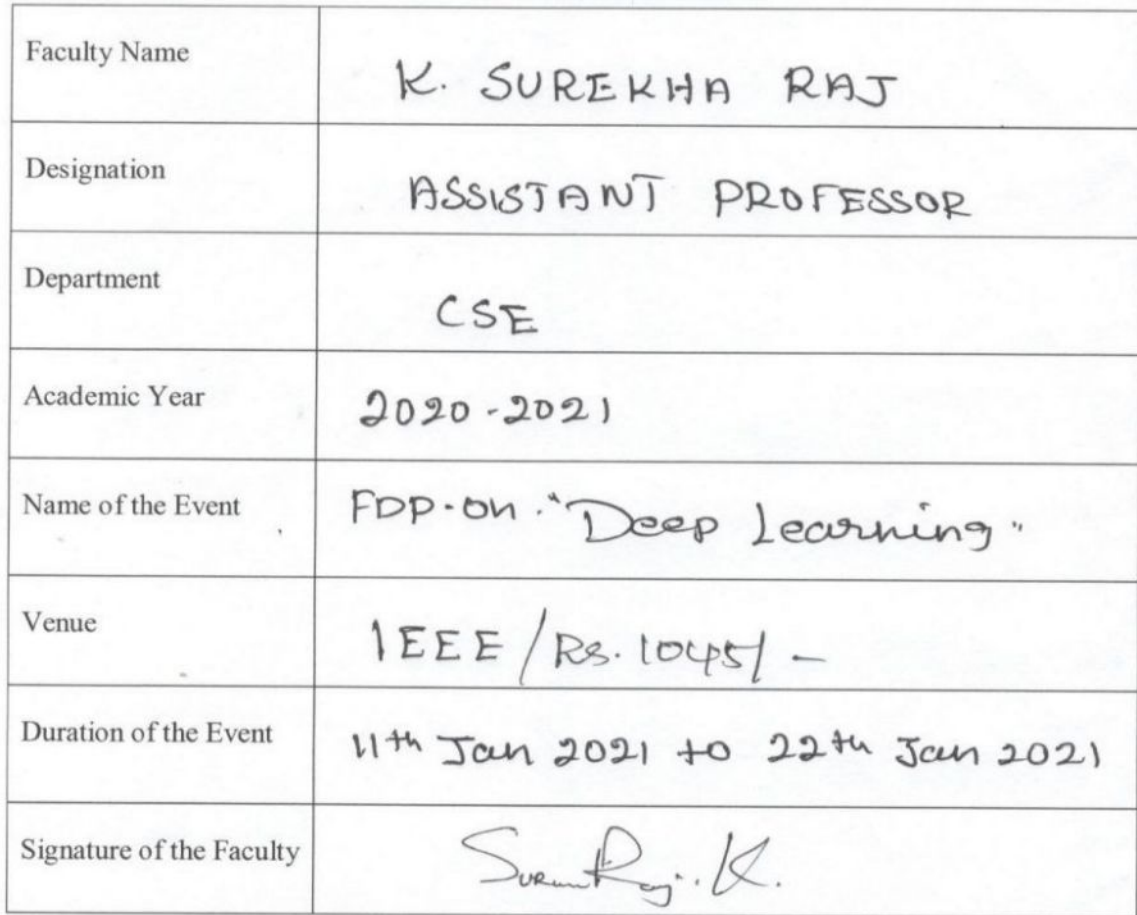 Faculty Name
K. SUREKHA RAJ
Designation
ASSISTANT PROFESSOR
Department
CSE
Academic Year
2020-2021
Name of the Event
FDP-on "Deep Learning"
Venue
IEEE/Rs.1045/-
Duration of the Event
11th Jan 2021 to 22th Jan 2021
Signature of the Faculty